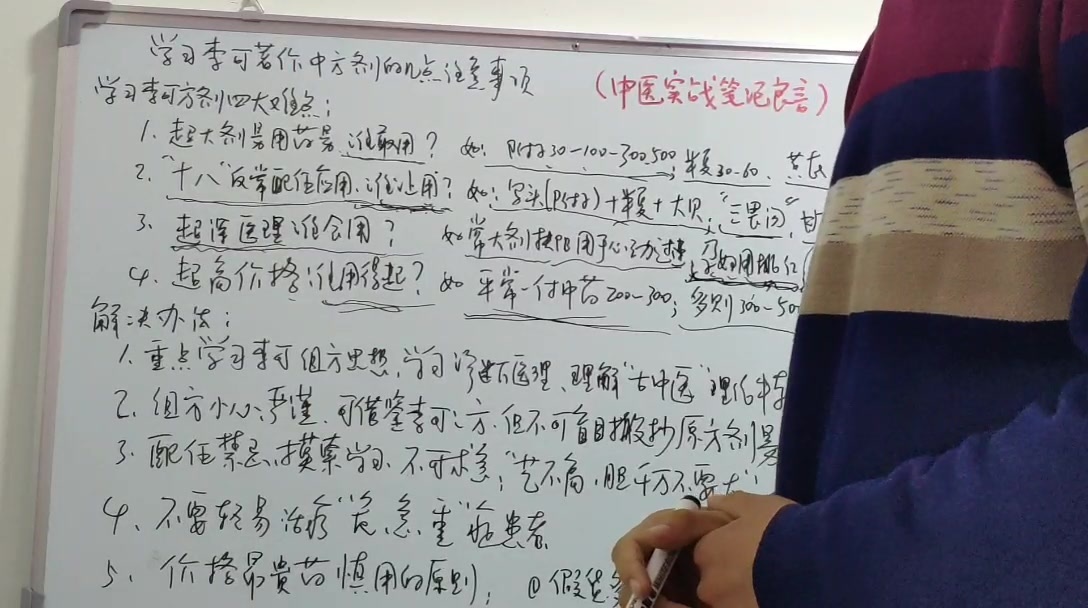 学习李可著作中方剂的几点注意事项
(中医实战笔记良言)
学习李可方剂四大难点:
1. 超大剂量用药量谁敢用? 如: 附子30-100-300.500; 半夏30-60、黄芪
2. "十八"反常配伍应用、谁让用? 如: 乌头(附子)+半夏+大贝;"三畏汤"
3. 超深医理谁会用? 如常大剂 用于心动过速 及如用桃仁
4. 超高价格谁用得起? 如 平常一付中药200-300; 多则300-500
解决办法:
1. 重点学习李可组方思想,学习 医理、理解"古中医"理论
2. 组方小心严谨、可借鉴李可之方、但不可盲目搬抄原方剂量
3. 配伍禁忌、摸索学习、不可求急;"艺不高,胆千万不要大";
4. 不要轻易治疗"危、急、重"症患者
5. 价格昂贵药慎用的原则; @假货